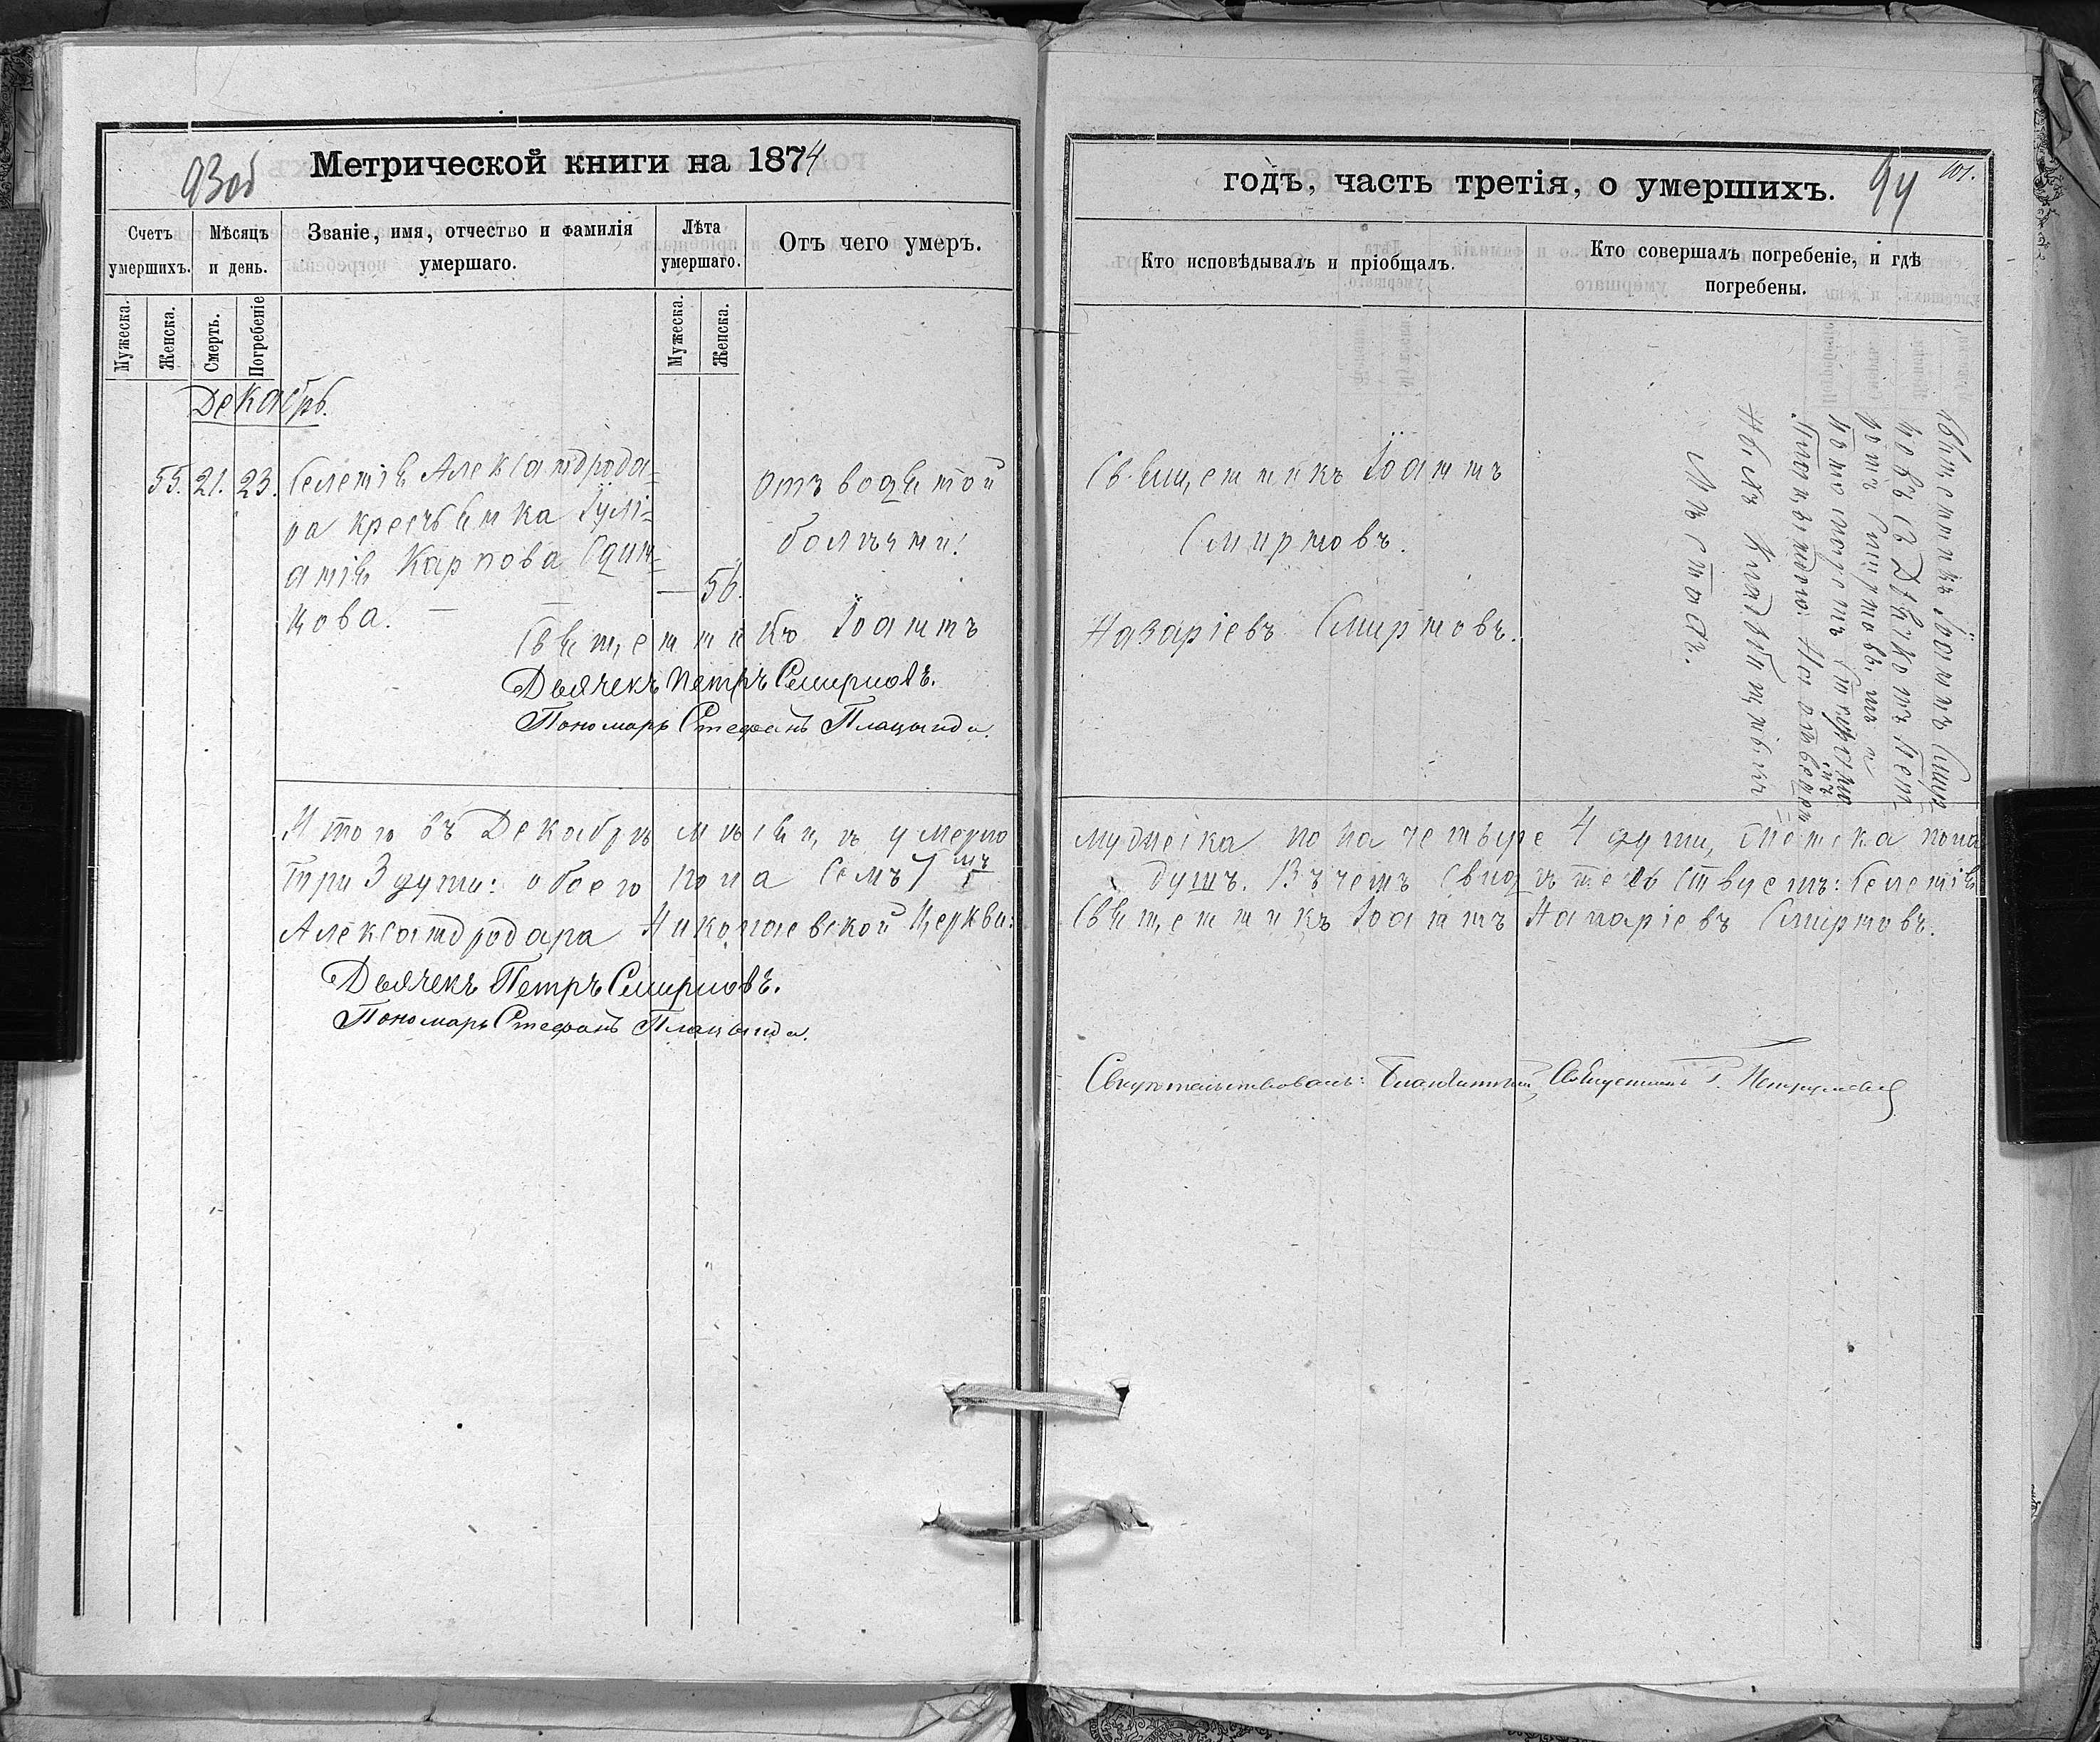 93об
Метрической книги на 1874
Счетъ умершихъ.
Мѣсяцъ и день.
Званіе, имя, отчество и фамилія умершаго.
Лѣта умершаго.
Отъ чего умеръ.
Мужеска.
Женска.
Смерть.
Погребеніе
Мужеска.
Женска.
Декабрь.
55. 21. 23. Селенія Александрода-
ра крестьянка Іулі-
анія Карпова Один-
цова.
56.
Отъ водяной
болѣзни.
Священникъ Іоаннъ
Дьячекъ Петръ Смирновъ.
Пономарь Стефанъ Плацында.
Итого въ Декабрѣ мѣсяцѣ умерло
три 3 души: обоего пола семь 7мъ
Александродара Николаевской Церкви:
Дьячекъ Петръ Смирновъ.
Пономарь Стефанъ Плацында.
годъ, часть третія, о умершихъ.
94
101.
Кто исповѣдывалъ и пріобщалъ.
Кто совершалъ погребеніе, и гдѣ погребены.
Священникъ Іоаннъ
Смирновъ.
Назаріевъ Смирновъ.
Священникъ Іоаннъ Смир
новъ съ Дьячкомъ Пет
ромъ Смирновымъ и
Пономаремъ Стефаномъ
Плацындою. На отведен
номъ кладбищномъ
мѣстѣ.
мужеска пола четыре 4 души, женска пола
душъ. Въ чемъ свидѣтельствуемъ: селенія
Священникъ Іоаннъ Назаріевъ Смирновъ.
Свидѣтельствовалъ: Благочинный, Священникъ Г.